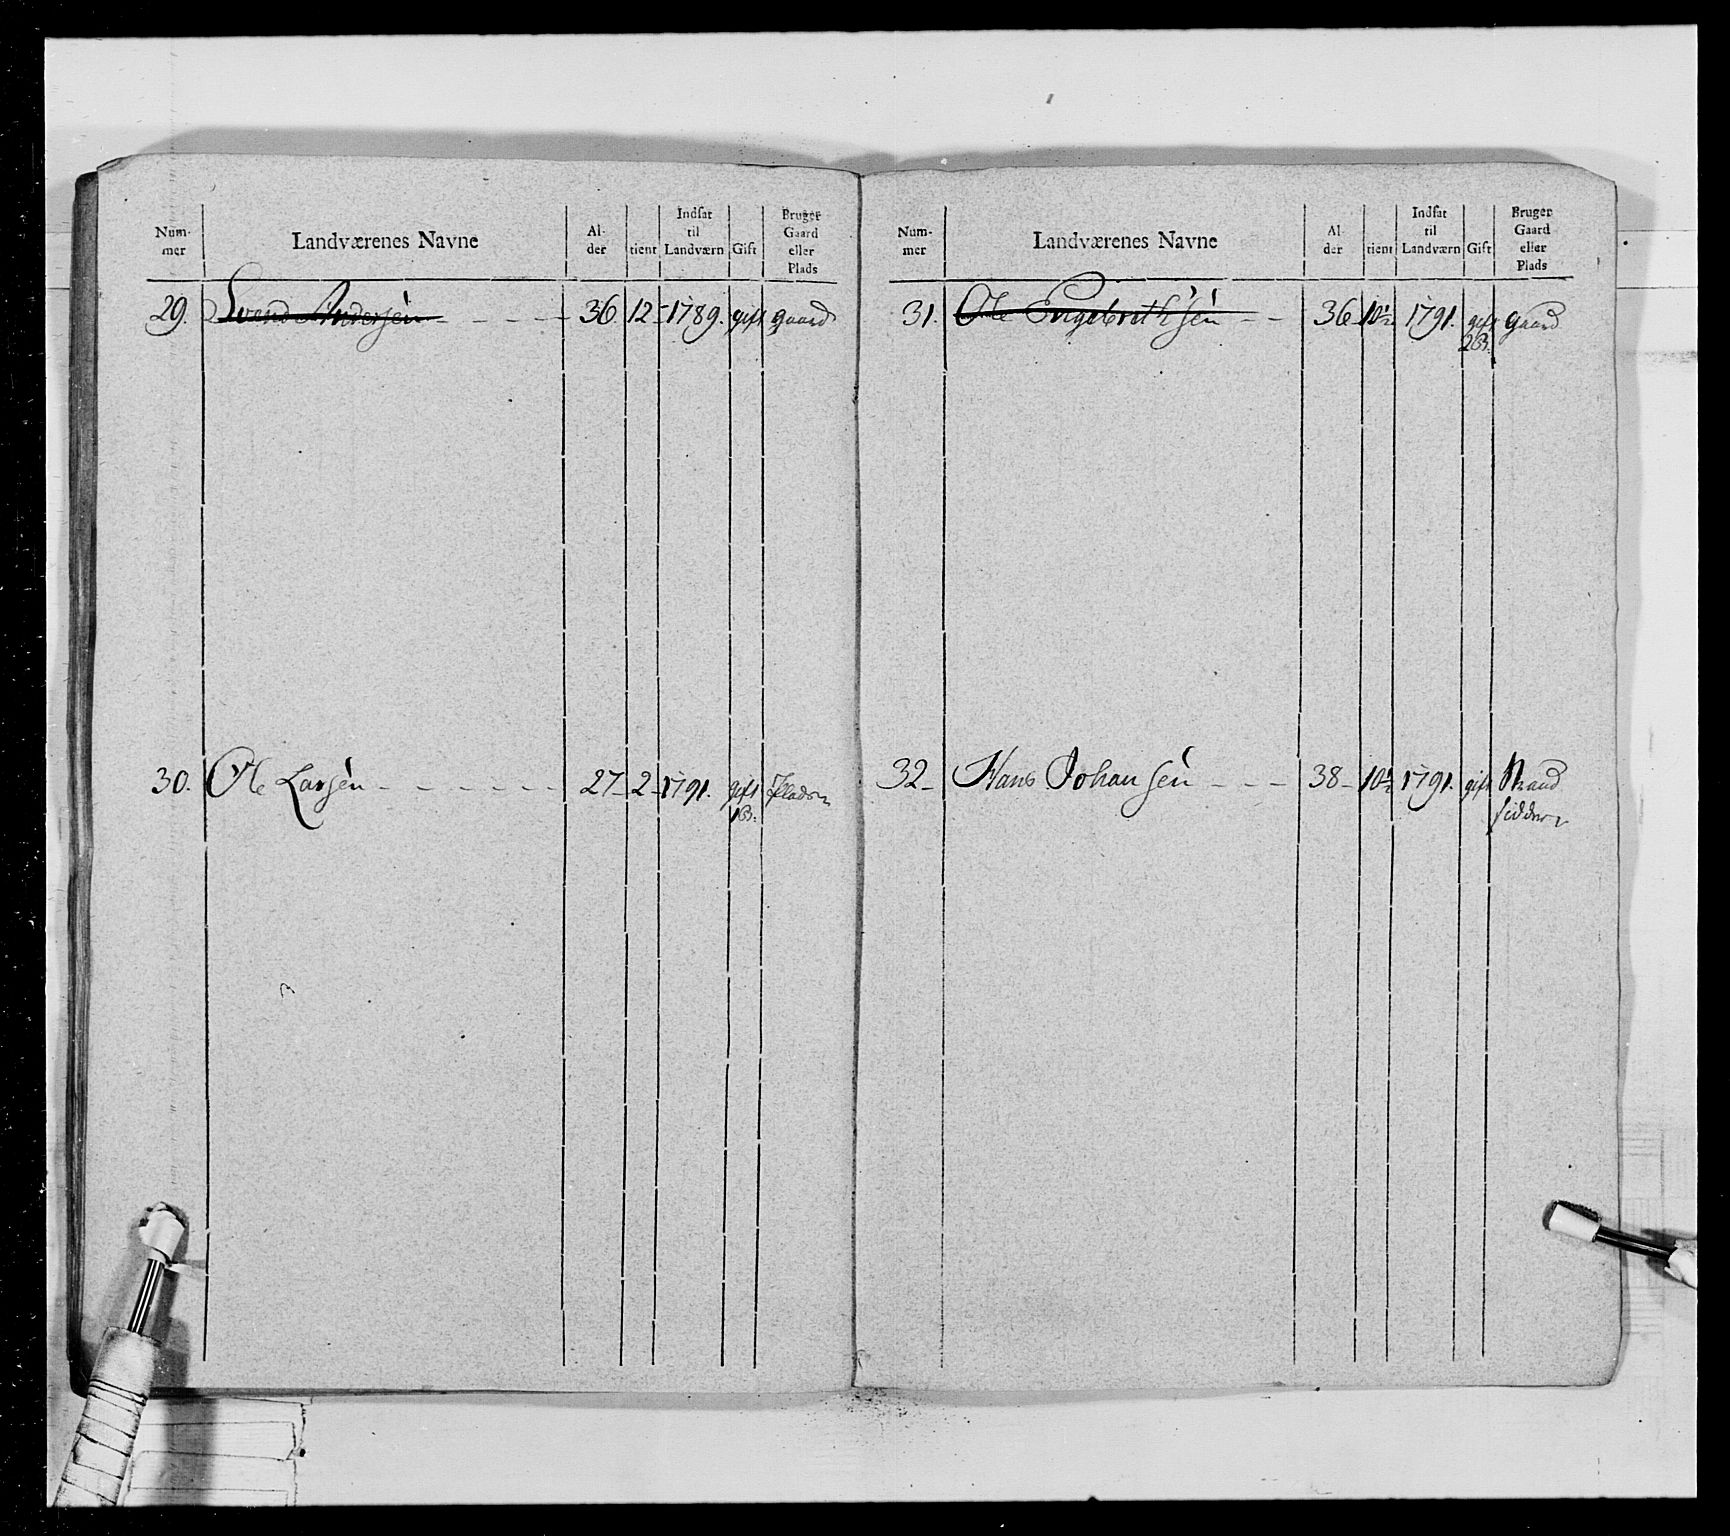 Num-
mer
Landværenes Navne
Al-
der
tient
Indsat
til
Landværn
Gift
Bruger
Gaard
eller
Plads
29. Svend Andersen - - - - - 36 12 - 1789. gift gaard
30. Ole Larsen - - - - - - 27 - 2 - 1791. gift Pladsm
1 B:
Num-
mer
Landværenes Navne
Al-
der
tient
Indsat
til
Landværn
Gift
Bruger
Gaard
eller
Plads
31. Ole Engebrethsen - - 36 - 10½ 1791. gift gaard
2 B.
32 - Hans Johansen - - - 38 - 10½ 1791. gift Strand
sidder